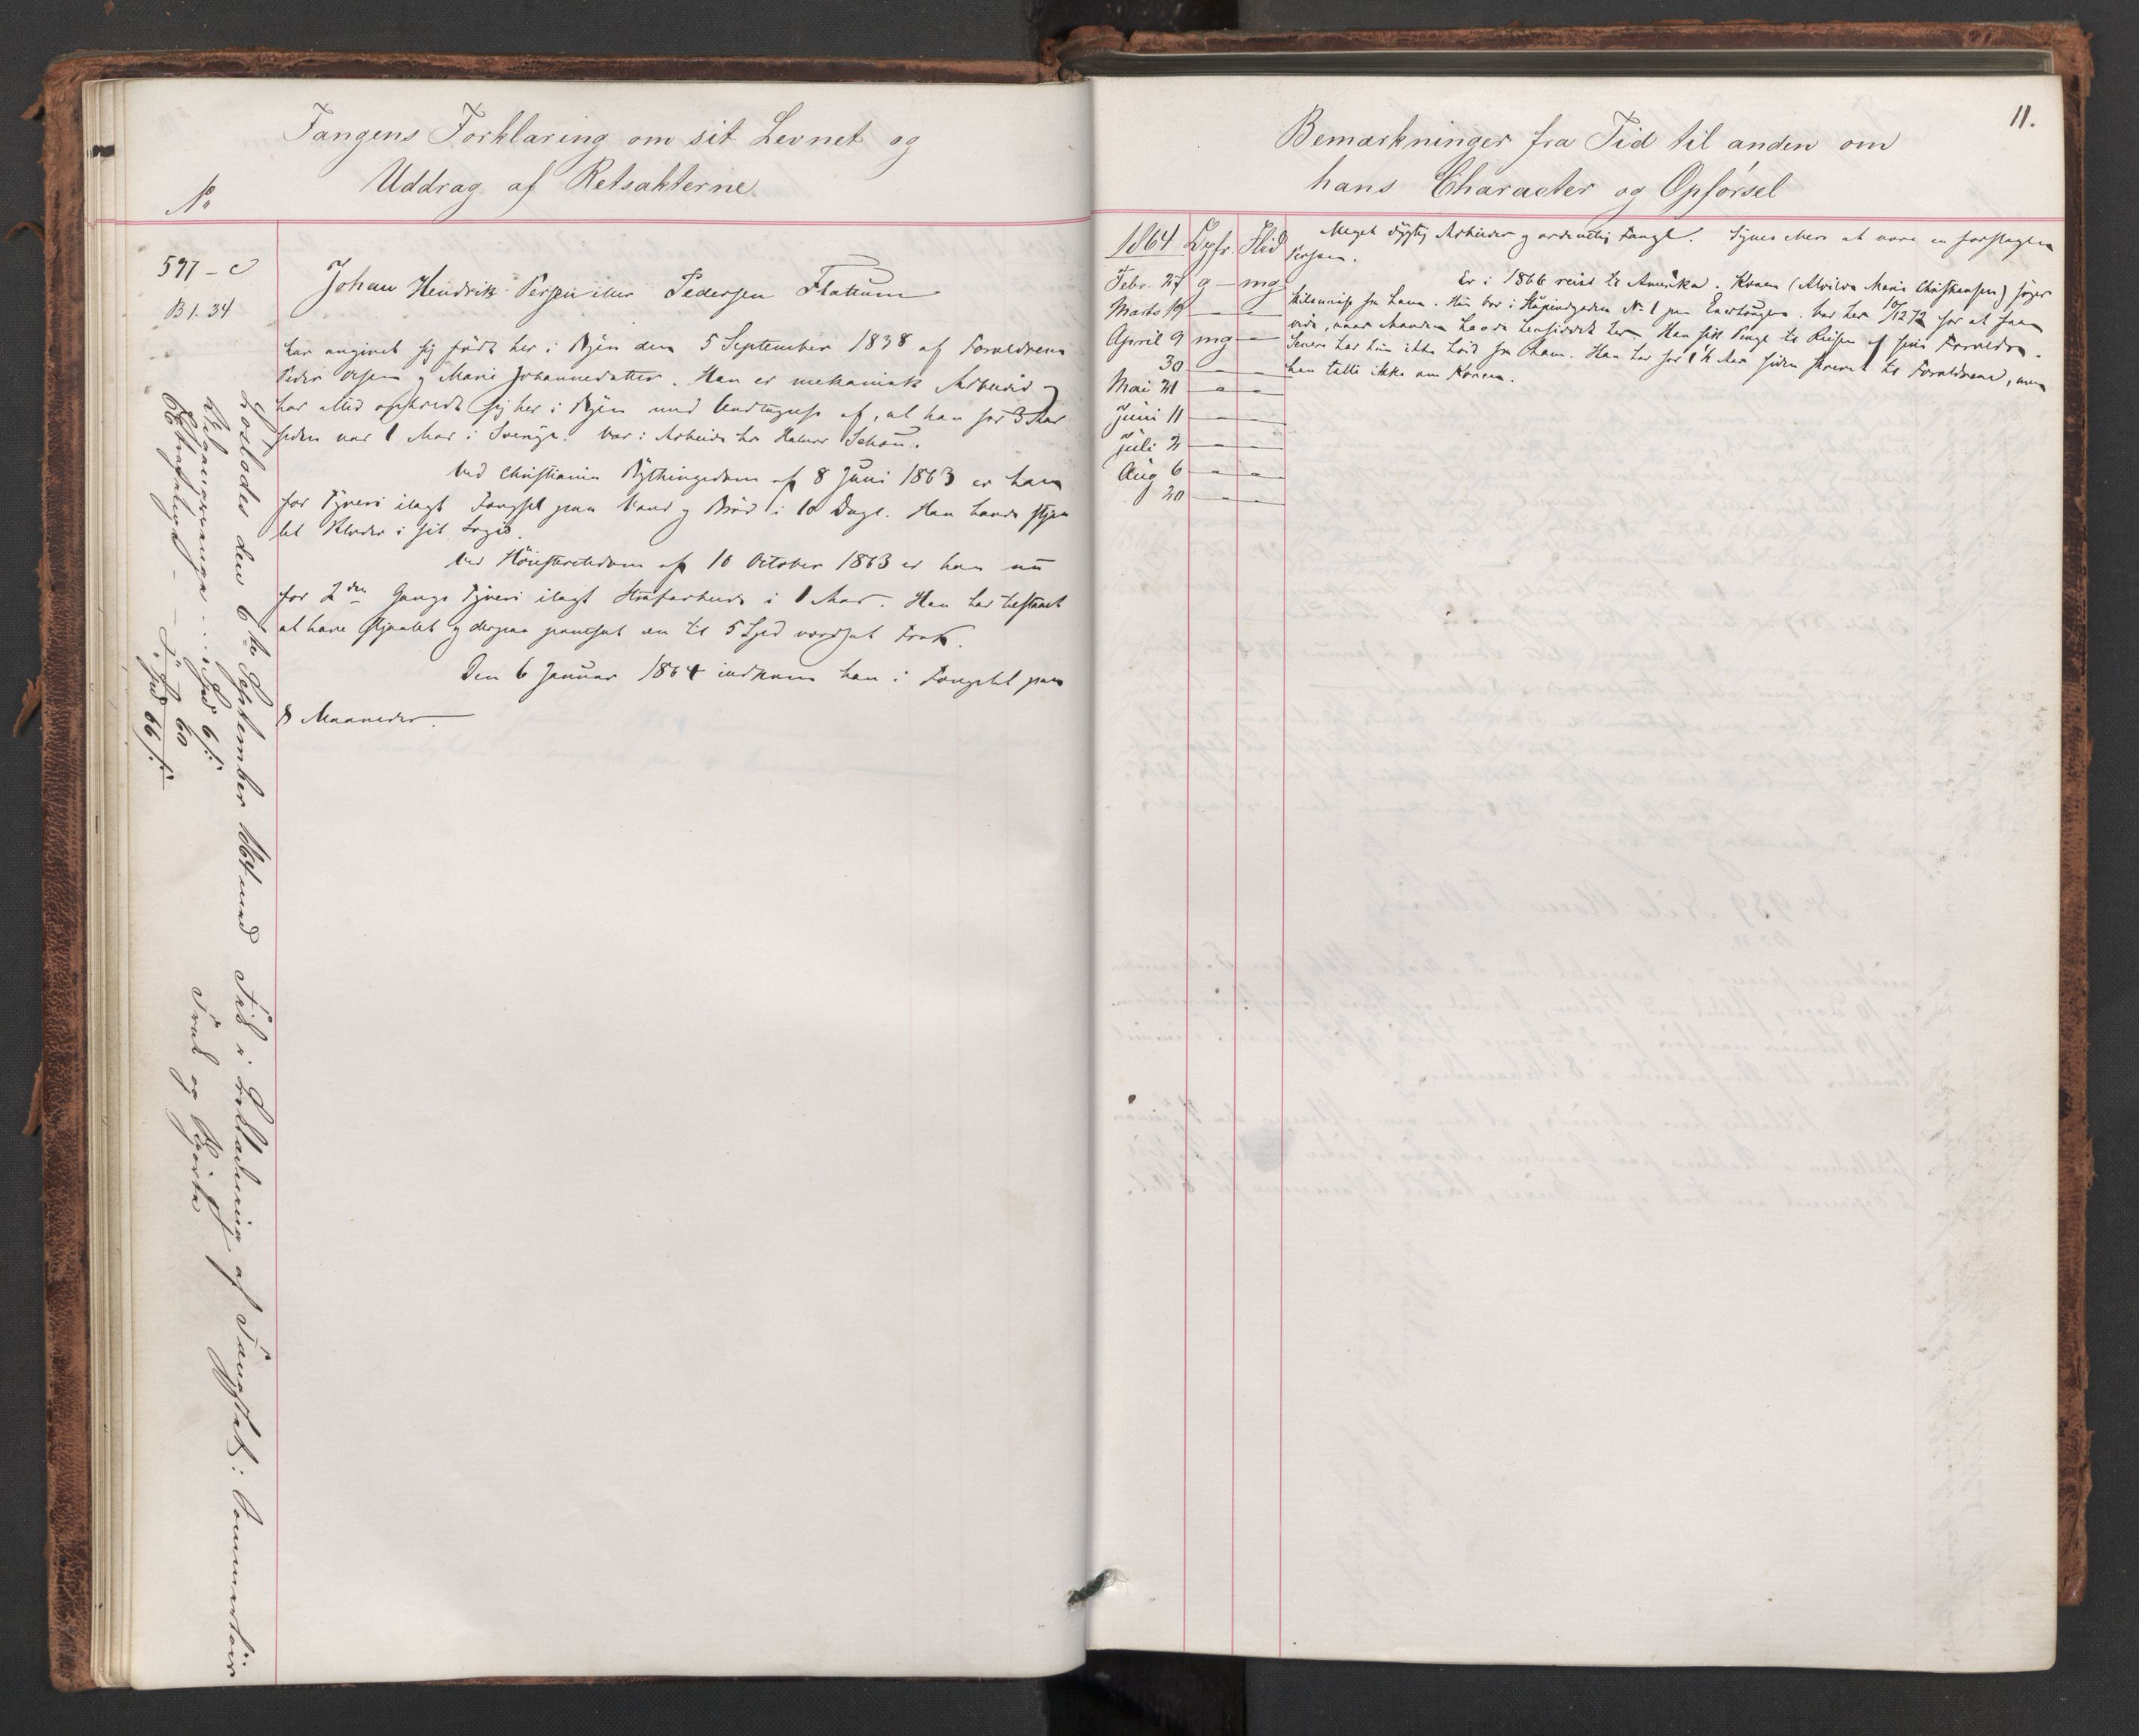 Fangens Forklaring om sit Levnet og
Uddrag af Retsakterne
No
597 - c
B 1. 34
Johan Hendrik Persen eller Pedersen Flattum
har angivet sig født her i Byen den 5 September 1838 af Forældrene
Peder Olsen og Marie Johannesdatter. Han er mekanisk Arbeider
har altid opholdt sig her i Byen med Undtagelse af, at han for 3 Aar
siden var 1 Aar i Sverige. Var i Arbeide hos Schou.
Ved Christiania Bythingsdom af 8 Juni 1863 er han
for Tyveri ilagt Fængsel paa Vand og Brød i 10 Dage. Han havde stjaa
let Klæder i sit Logis.
Ved Høiesteretsdom af 10 October 1863 er han nu
for 2den Gangs Tyveri ilagt Strafarbeide i 1 Aar. Han har tilstaaet
at have stjaalet og derpaa pantsat en til 5 Spd værdsat Frak.
Den 6 Januar 1864 indkom han i Fængslet paa
8 Maaneder.
Løslodes den 6te September 1864 med Tid i
Frak og
Spd 6
" 60
Spd 66
11.
Bemærkninger fra Tid til anden om
hans Character og Opførsel
1864 Opfr. Flid
Febr. 27 g - mg
Marts 19 - -
April 9 mg -
30 - -
Mai 21 - -
Juni 11 - -
Juli 2 - -
Aug 6 - -
20 - -
Meget dygtig Arbeider og ordentlig Fange. Synes ellers at være en forslagen
Person.
Er i 1866 reist til Amerika. Konen (Alvilde Marie Christensen) søger
Skilsmisse fra ham. Hun bor i No 1 paa Enerhougen. Var her 10/12 72 for at faa
vide, naar Manden havde hensiddet her. Han fik Penge til Reisen af sine Forældre.
Senere har hun ikke hørt fra ham. Han har for 1 1/2 Aar siden skrevet til Forældrene, men
han talte ikke om Konen.